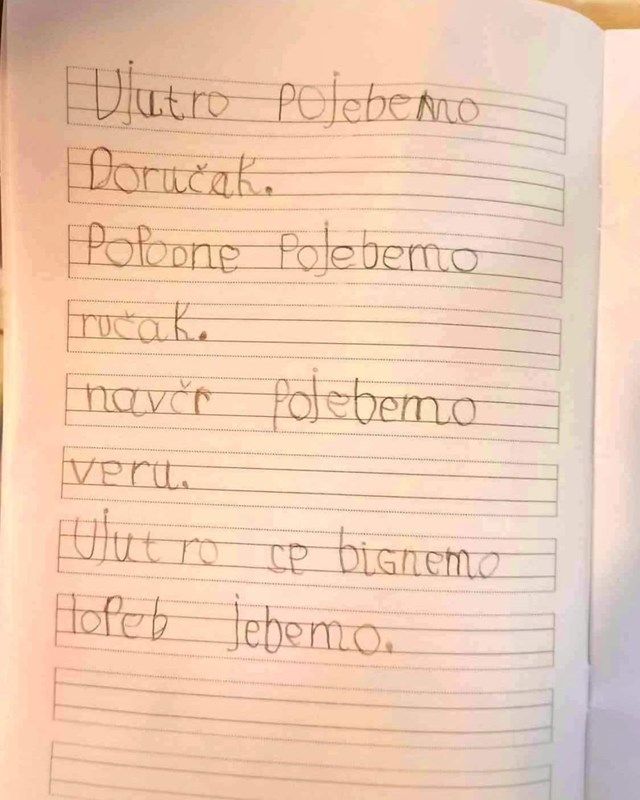 Ujutro pojebemo
Doručak.
Popodne pojebemo
ručak.
navčr pojebemo
veru.
Ujutro ce bignemo
jebemo.